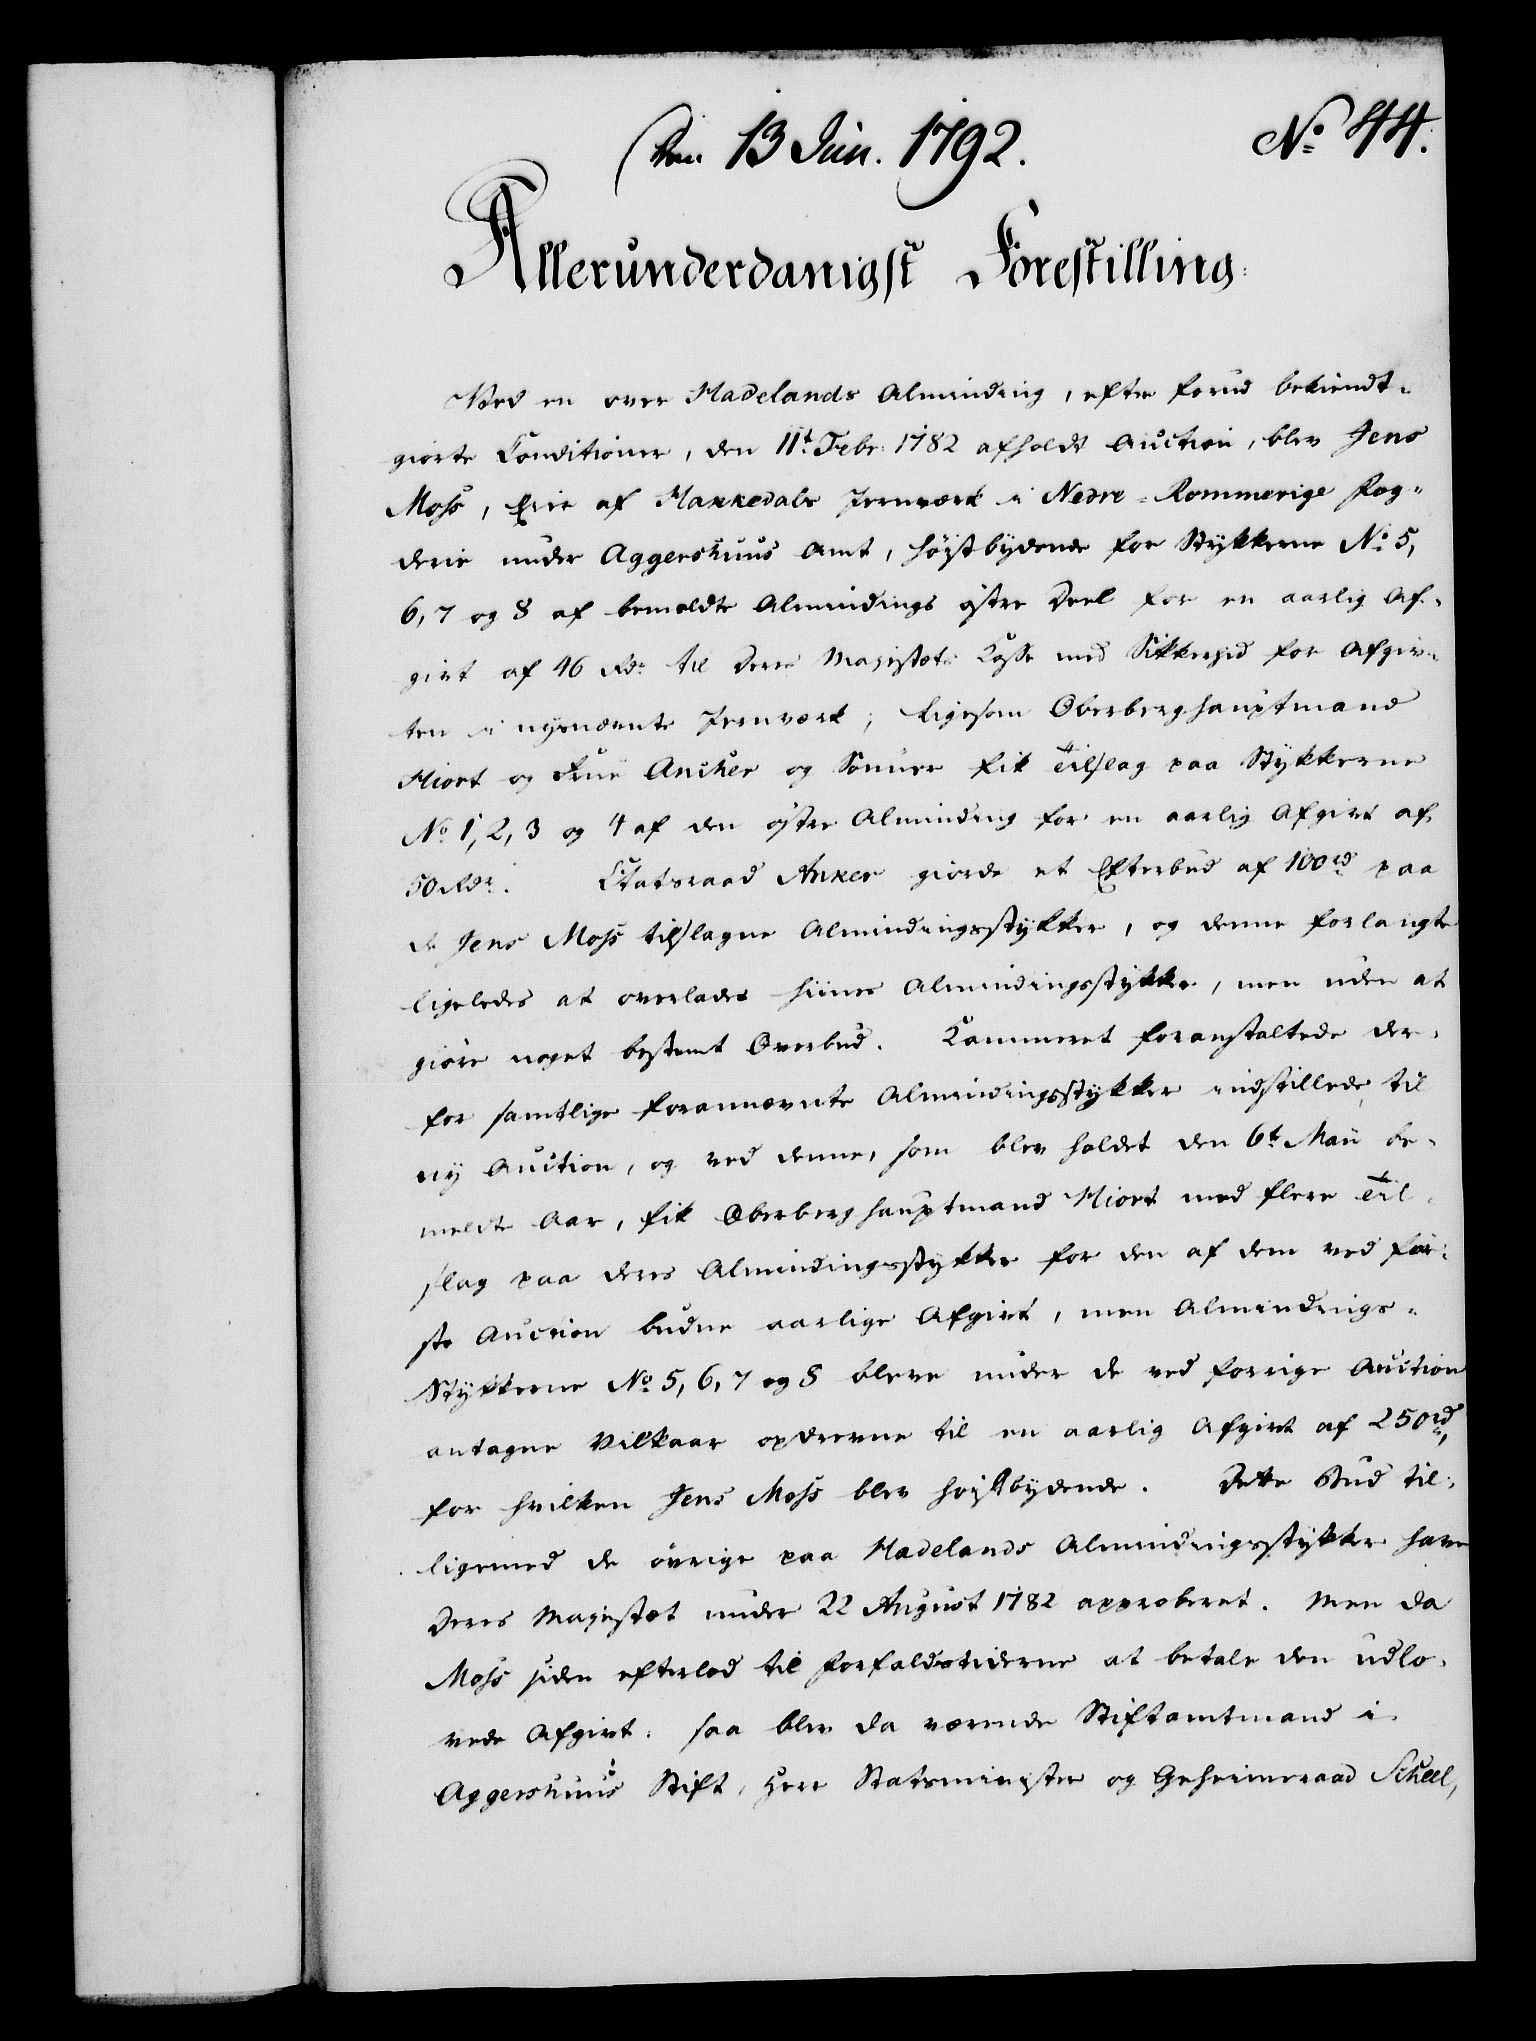 Den 13 Jun. 1792.
No 44.
Allerunderdanigst Forestilling.
Ved en over Hadelands Alminding, efter forud bekiendt-
giorte Conditioner, den 11t Febr. 1782 afholdt Auction, blev Jens
Moss, Eier af Hakkedals Jernværk i Nedre-Rommerige Fog-
derie under Aggershuus Amt, høistbydende for Stykkerne No 5,
6, 7 og 8 af bemeldte Almindings østre Deel for en aarlig Af-
givt af 46 Rdr til Deres Majestæts Casse med Sikkerhed for Afgiv-
ten i nysnævnte Jernværk; ligesom Oberberghauptmand
Hiort og Frue Ancher og Sønner fik Tilslag paa Stykkerne
No 1, 2, 3 og 4 af den østre Alminding for en aarlig Afgivt af
50 Rdr. Etatsraad Anker giorde et Efterbud af 100rd paa
de Jens Moss tilslagne Almindingsstykker, og denne forlangte
ligeledes at overlades hiines Almindingsstykke, men uden at
giøre noget bestemt Overbud. Kammeret foranstaltede der-
for samtlige forannævnte Almindingsstykker indstillede til
ny Auction, og ved denne, som blev holdet den 6t Maii be-
meldte Aar, fik Oberberghauptmand Hiort med flere Til-
slag paa deres Almindingsstykker for den af dem ved før-
ste Auction budne aarlige Afgivt, men Almindings-
Stykkerne No 5, 6, 7 og 8 bleve under de ved forrige Auction
antagne Vilkaar opdrevne til en aarlig Afgivt af 250rd,
for hvilken Jens Moss blev høistbydende. Dette Bud til-
ligemed de øvrige paa Hadelands Almindingsstykker have
Deres Majestæt under 22 August 1782 approberet. Men da
Moss siden efterlod til Forfaldstiderne at betale den udlo-
vede Afgivt. saa blev da værende Stiftamtmand i
Aggershuus Stift, Herr Statsminister og Geheimeraad Scheel,